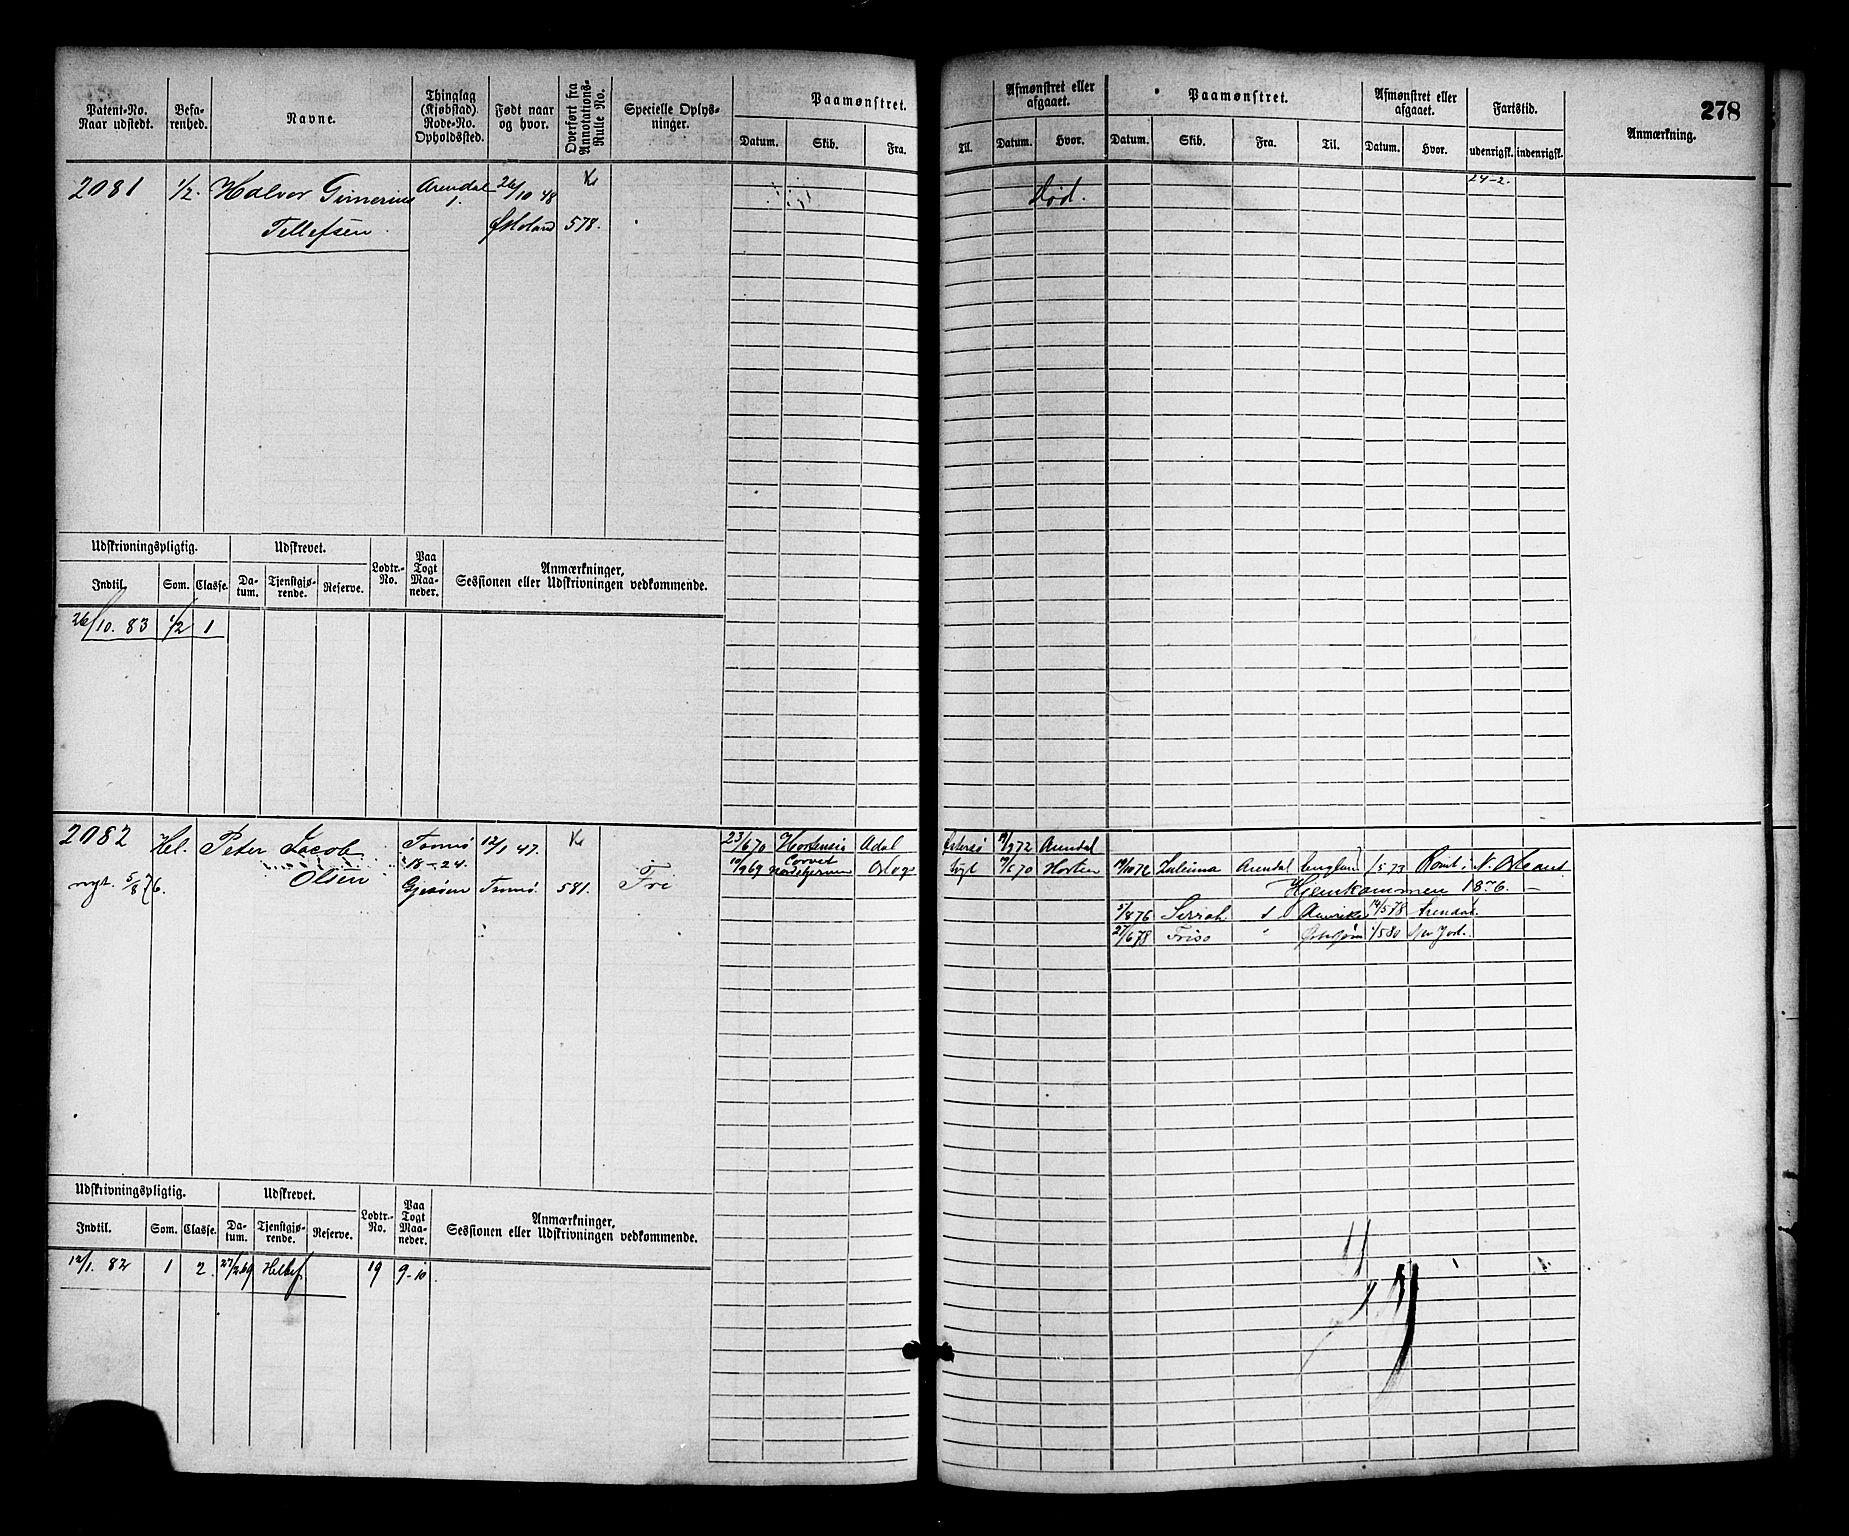 Patent-No. Naar udstedt.
Befarenhed.
Navne.
Thinglag (Kjøbstad) Rode-No. Opholdssted.
Født naar og hvor.
Overført fra Annotations-Rulle No.
Specielle Oplysninger.
Paamønstret.
Datum. Skib. Fra.
Til.
Afmønstret eller afgaaet.
Datum. Hvor.
Paamønstret.
Datum. Skib. Fra. Til.
Afmønstret eller afgaaet.
Datum. Hvor.
Fartstid.
udenrigsk. indenrigsk.
Anmærkning.
278
2081 1/2 Halvor Gimerius Arendal 26/10 48 24-2.
Tellefsen 1. 578. Død.
Udskrivningspligtig. Udskrevet. Lodtr.-No. Paa Togt Maaneder. Anmærkninger, Sessionen eller Udskrivningen vedkommende.
Indtil. Som. Classe. Datum. Tjenstgjørende. Reserve.
26/10. 83 1/2 1
2082 Hel. Peter Jacob Tromø 12/1 47. 23/6 70 Hortensia Adal 72 Arendal
Olsen 18-24. 10/9 69 Corvet Nordstjernen Togt 70 Horten 72 Arendal 73 N. Orleans
nyt. 5/8 76. Gjesøen Tromø 581. Fri Hjemkommen 1876.
5/8 76 Amerika 14/5 78 Arendal.
27/6 78 Friso
Udskrivningspligtig. Udskrevet. Lodtr.-No. Paa Togt Maaneder. Anmærkninger, Sessionen eller Udskrivningen vedkommende.
Indtil. Som. Classe. Datum. Tjenstgjørende. Reserve.
12/1. 82 1 2. 27/2 69 19 9-10.